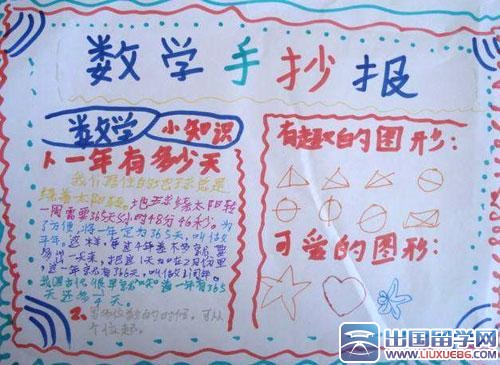 数学手抄报
数学 小知识
1、一年有多少天
我们居住的地球总是
绕着太阳转。地球绕太阳转
一周需要365天5小时48分46秒。为
了方便,将一年定为365天,叫做
平年。这样,每过4年差不多就要
多出一天来,把这1天加在2月份里,
这一年就有366天,叫做闰年。
2、
有趣的图形:
可爱的图形:
出国留学网
WWW.LIUXUE86.COM